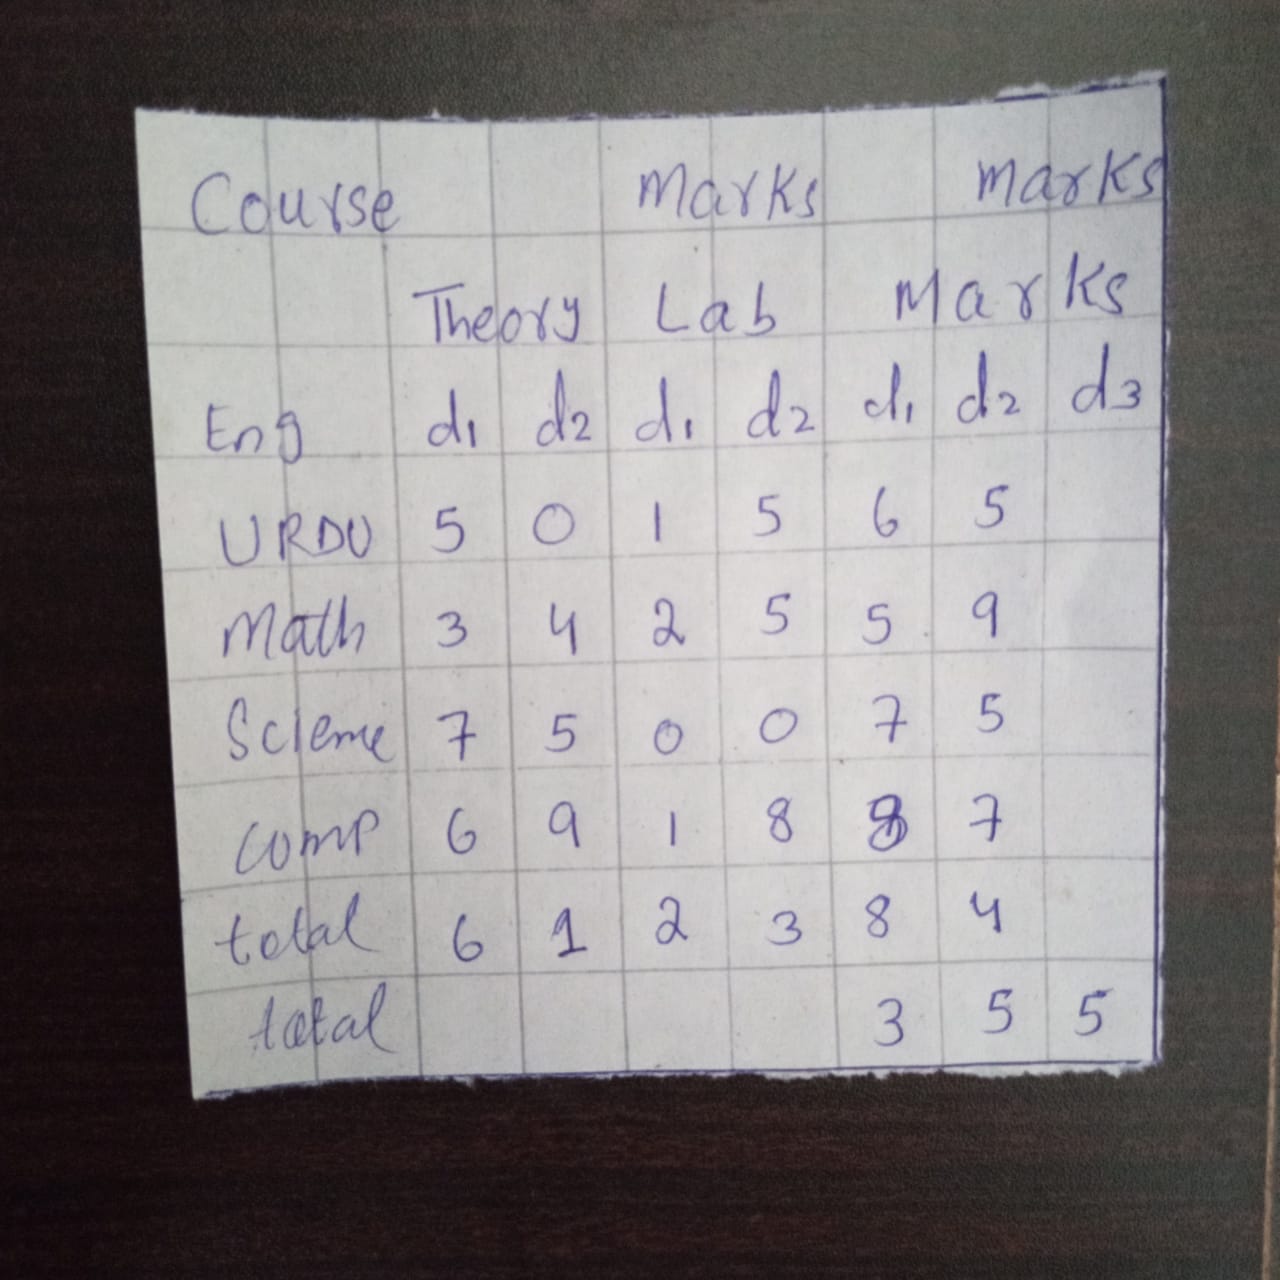 Course Marks Marks
Theory Lab Marks
Eng d1 d2 d1 d2 d1 d2 d3
URDU 5 0 1 5 6 5
Math 3 4 2 5 5 9
Science 7 5 0 0 7 5
comp 6 9 1 8 8 7
total 6 1 2 3 8 4
total 3 5 5